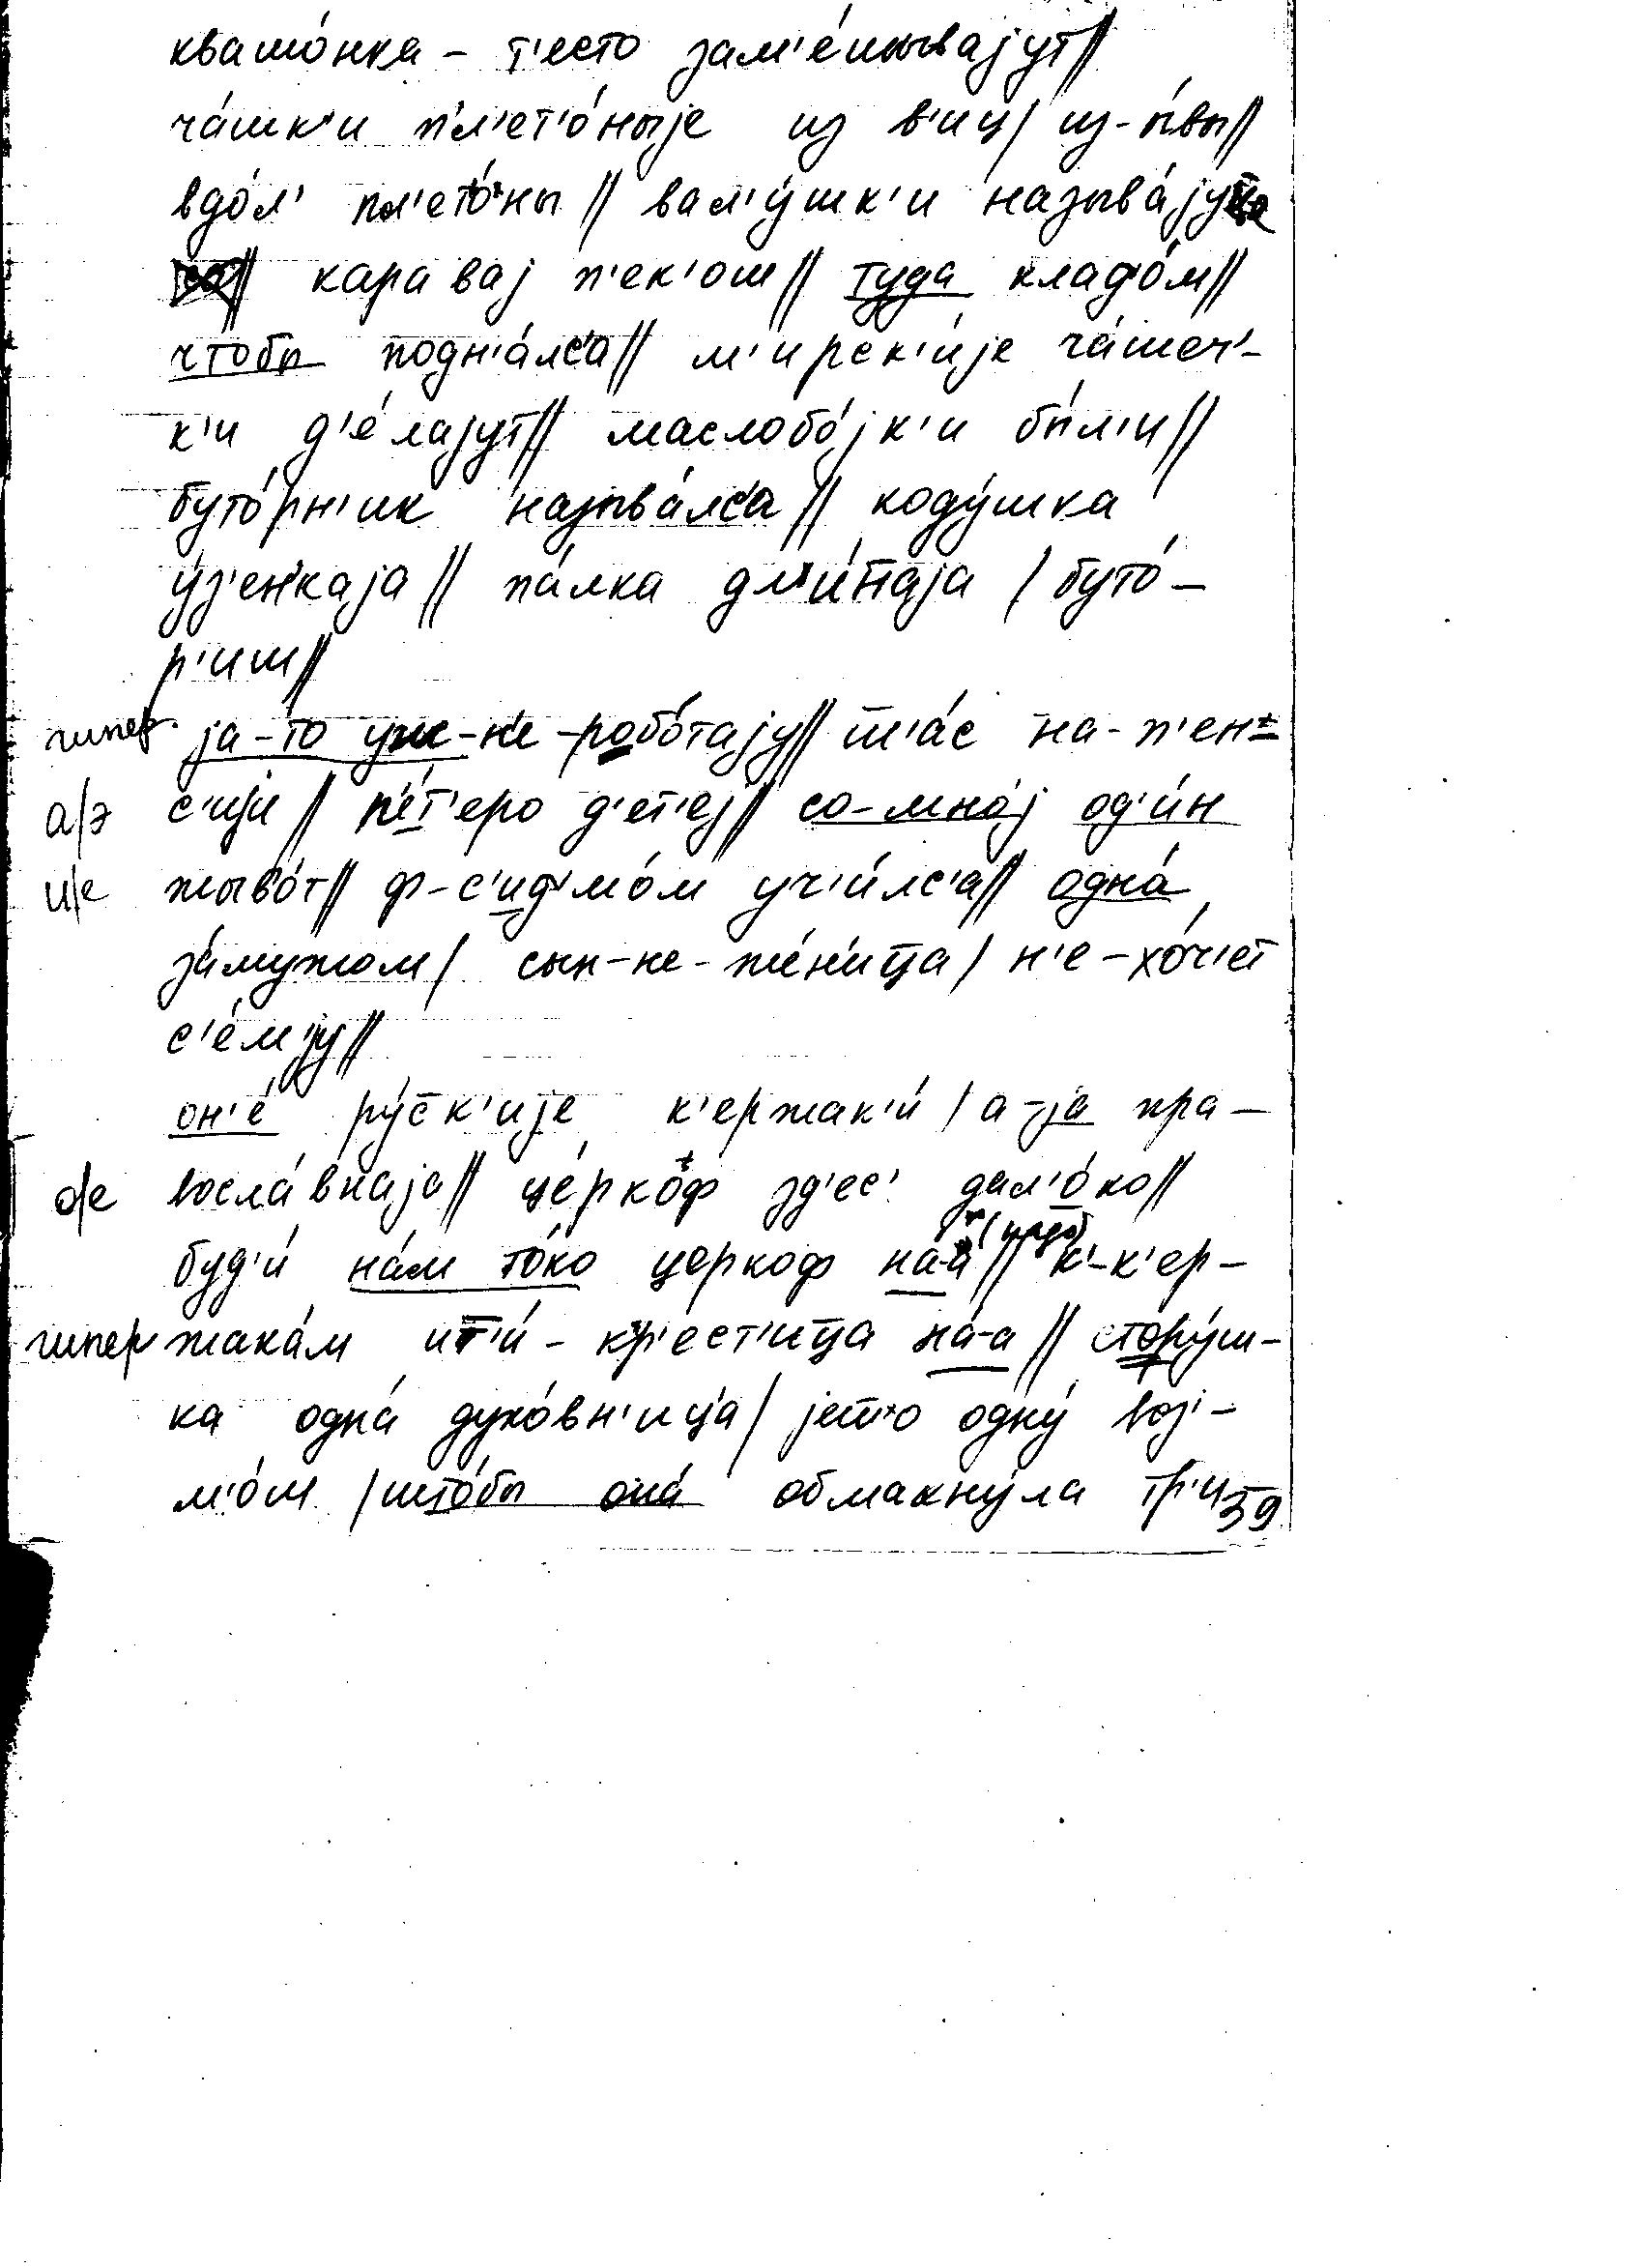 квашо́нка – т'есто зам'е́шывајут//
ча́шк'и пл'ет'о́ныје из в'иц/ из-и́вы//
вдо́л' пл'ето́ны // вал'у́шк'и называ́јуца
каравај п'ек'ош// туда клад'о́м//
чтобы подн'а́лс'а// м'ирск'и́је ча́шеч'–
к'и д'е́лајут// маслобо́јк'и бы́л'и//
буто́рн'ик называ́лс'а// коду́шка
у́з'ен'каја// па́лка дл'и́н̅аја / буто́–
р'иш//
гипер ја-то уж-не-робо́тају// ш'а́с на-п'ен–
а/э с'иji // п'е́т'еро д'ет'еј// со-мно́ј од'и́н
и/е жыво́т// ф-с'ид'мо́м уч'и́лс'а// одна́
за́мужом/ сын-не-же́н'иц̅а/ н'е-хо́ч'ет
с'е́мју//
он'е́ ру́с̅к'ије к'ержак'и́ / а-ја пра–
о/е восла́внаја// це́ркоф зд'ес' дал'о́ко//
буд'и́ на́м то́ко церкоф на́-а (надо)// к'-к'ер–
гипер жака́м ит̅'и́ – кр'ест'иц̅а на́-а // стору́ш–
ка одна́ духо́вн'ица/ јеш'о одну́ воз'–
м'о́ш /што́бы она́ обмакну́ла тр'и
39